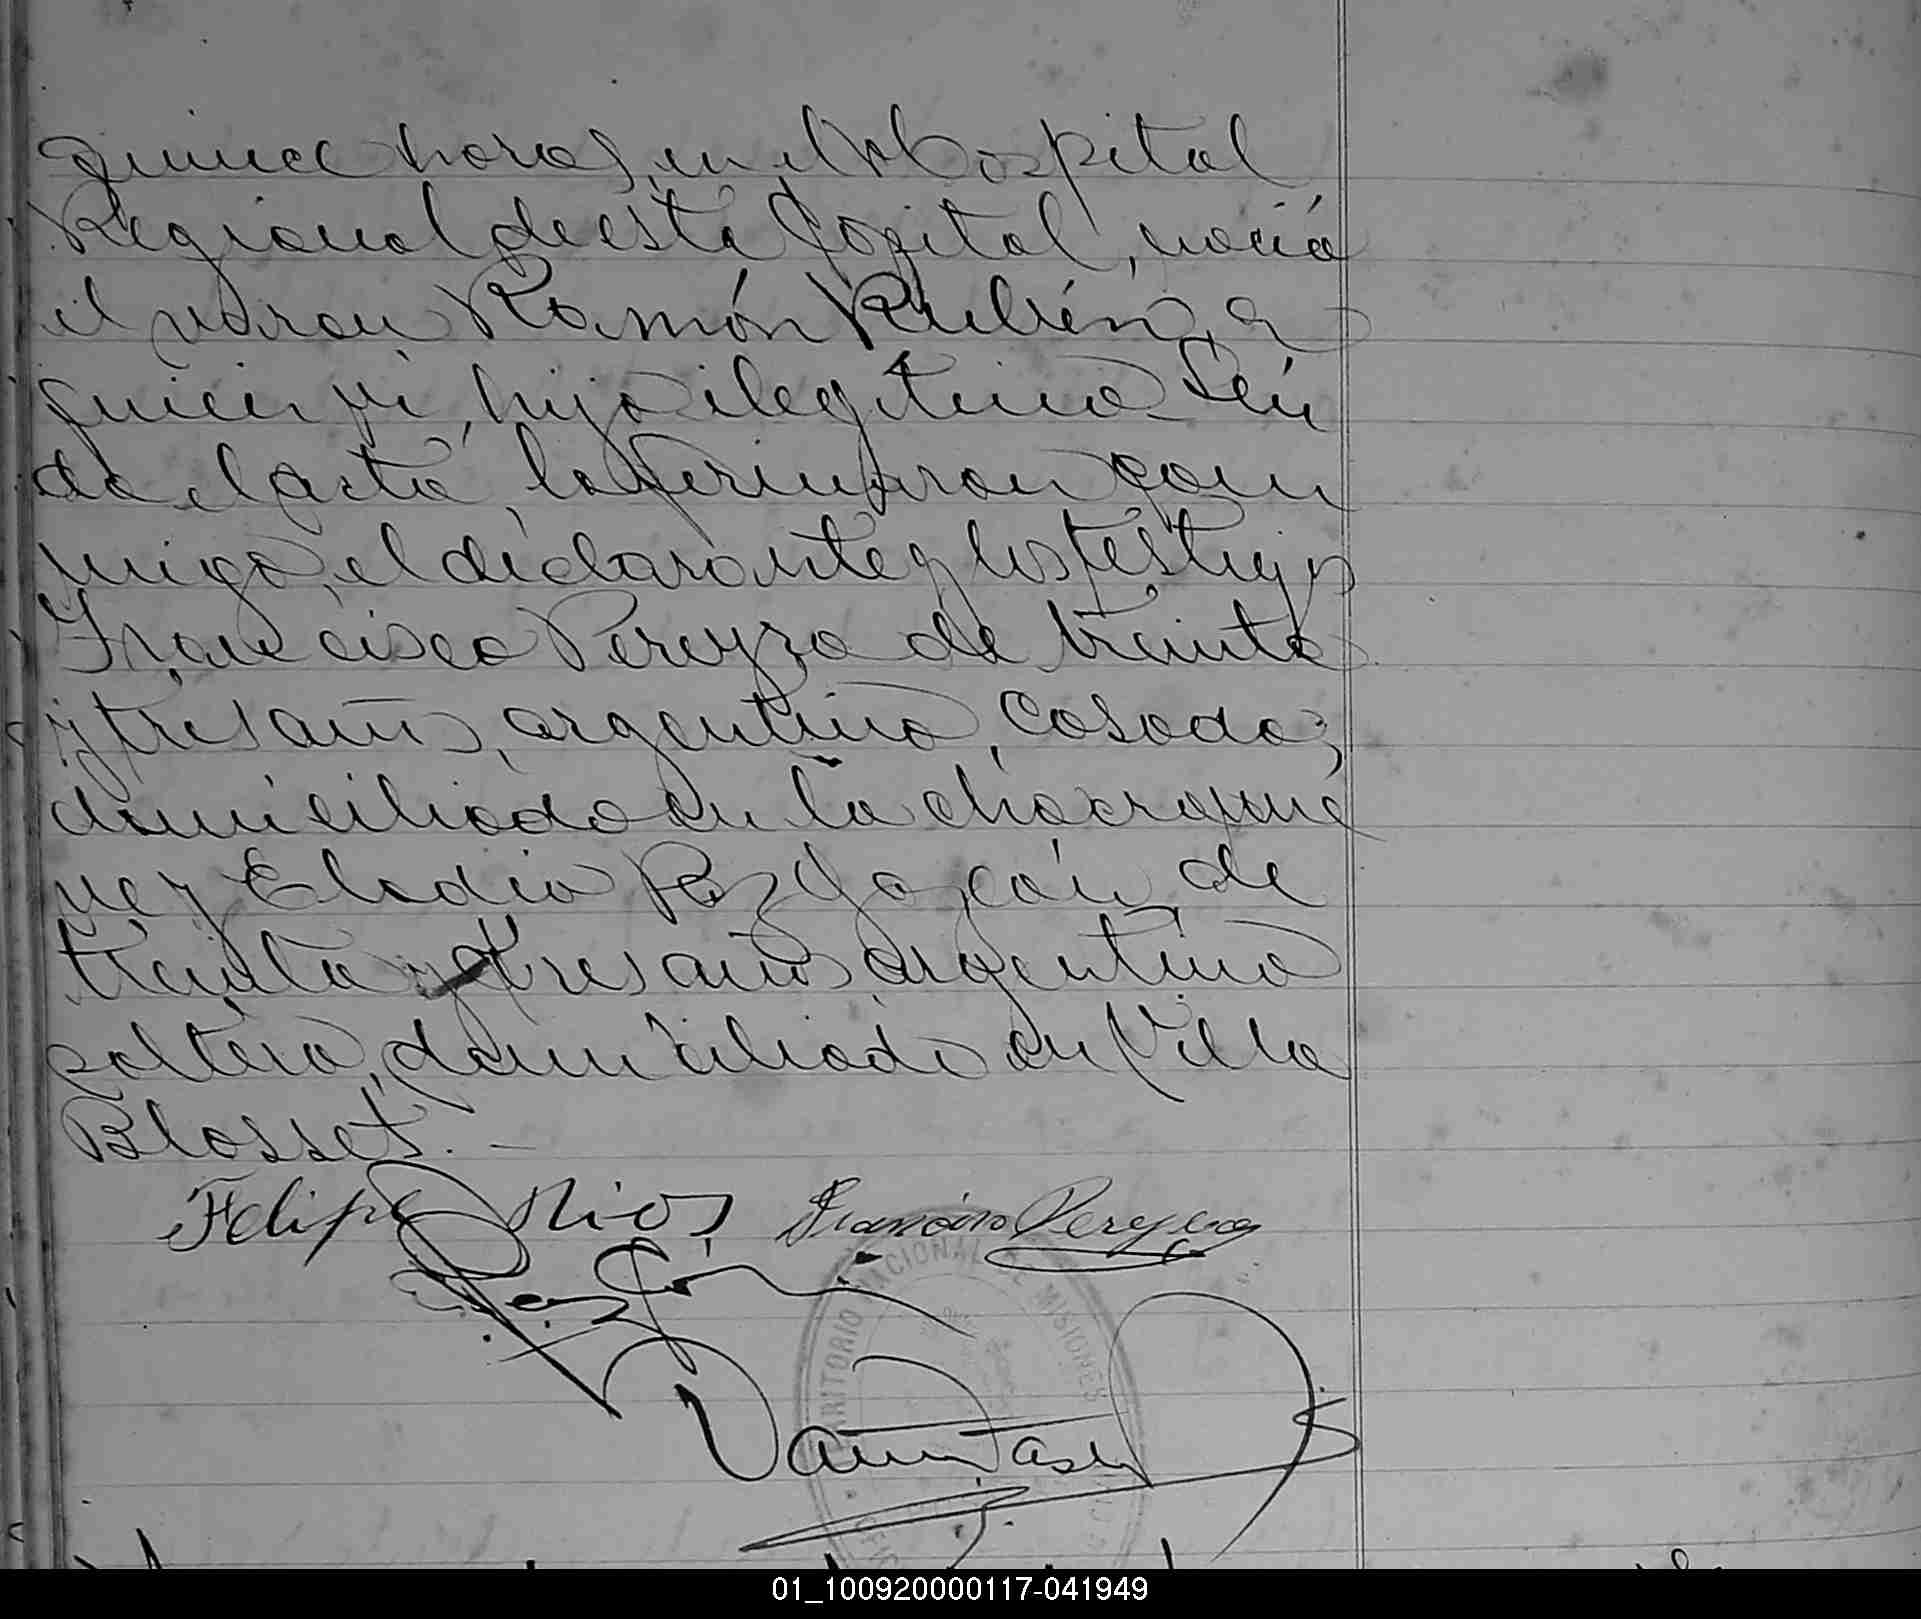 quince horas, en el Hospital
Regional de esta Capital, nació
el varon Ramón Rubén, a
quien vi, hijo ilegitimo. Leí
da el acta, la firmaron con
migo, el declarante y los testigos
Francisco Pereyra de treinta
y tres años, argentino, casado,
domiciliado en la chacra nue
ve y Eladio Paz Garcia, de
treinta y tres años, argentino
soltero, domiciliado en Villa
Blosset. —
Felipe Rios Francisco Pereyra
TERRITORIO NACIONAL DE MISIONES
01_100920000117-041949